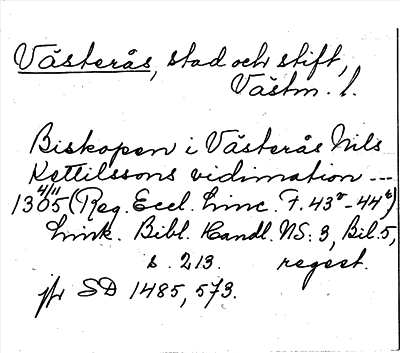 Västerås, stad och stift,
Västm. l.
Biskopen i Västerås Nils
Kettilssons vidimation ---
4/11
1305 (Reg. Eccl. Linc. F. 43r-44v)
Link. Bibl. Handl. NS: 3, Bil. 5,
s. 213. regest.
jfr SD 1485, 573.